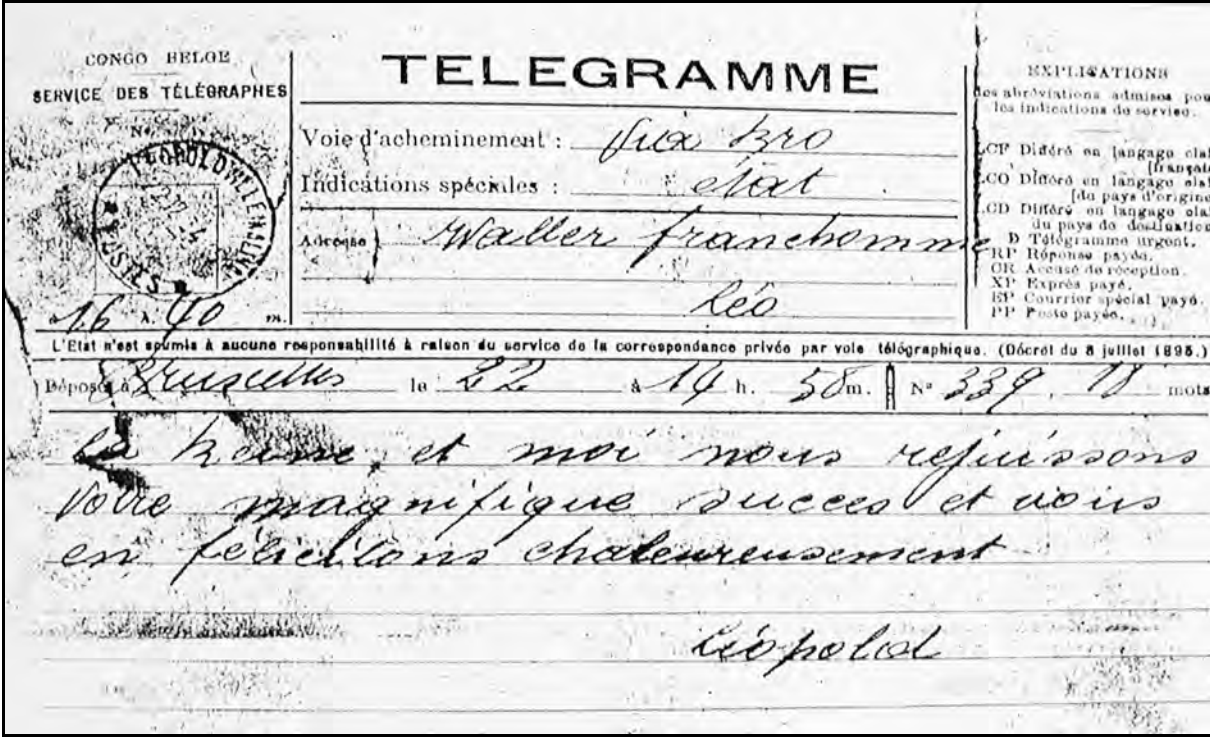 CONGO BELGE
SERVICE DES TÉLÉGRAPHES
No
LEOPOLDVILLE
22 -4
POSTES
à 16 h. 40 m.
TELEGRAMME
Voie d'acheminement : Via Bro
Indications spéciales : état
Adresse } Waller franchomme
Léo
EXPLICATIONS
des abréviations admises pou
les indications de service.
LCF Différé en langage clai
[françai
LCO Différé en langage clai
[du pays d'origine
LCD Différé en langage clai
du pays de destination
D Télégramme urgent.
RP Réponse payée.
CR Accusé de réception.
XP Exprès payé.
EP Courrier spécial payé.
PP Poste payée.
L'Etat n'est soumis à aucune responsabilité à raison du service de la correspondance privée par voie télégraphique. (Décret du 8 juillet 1895.)
Déposé à Bruxelles le 22 à 14 h. 58 m. No 339, 18 mots
La Reine et moi nous rejuissons
votre magnifique succes et vous
en félicitons chaleureusement
Léopold